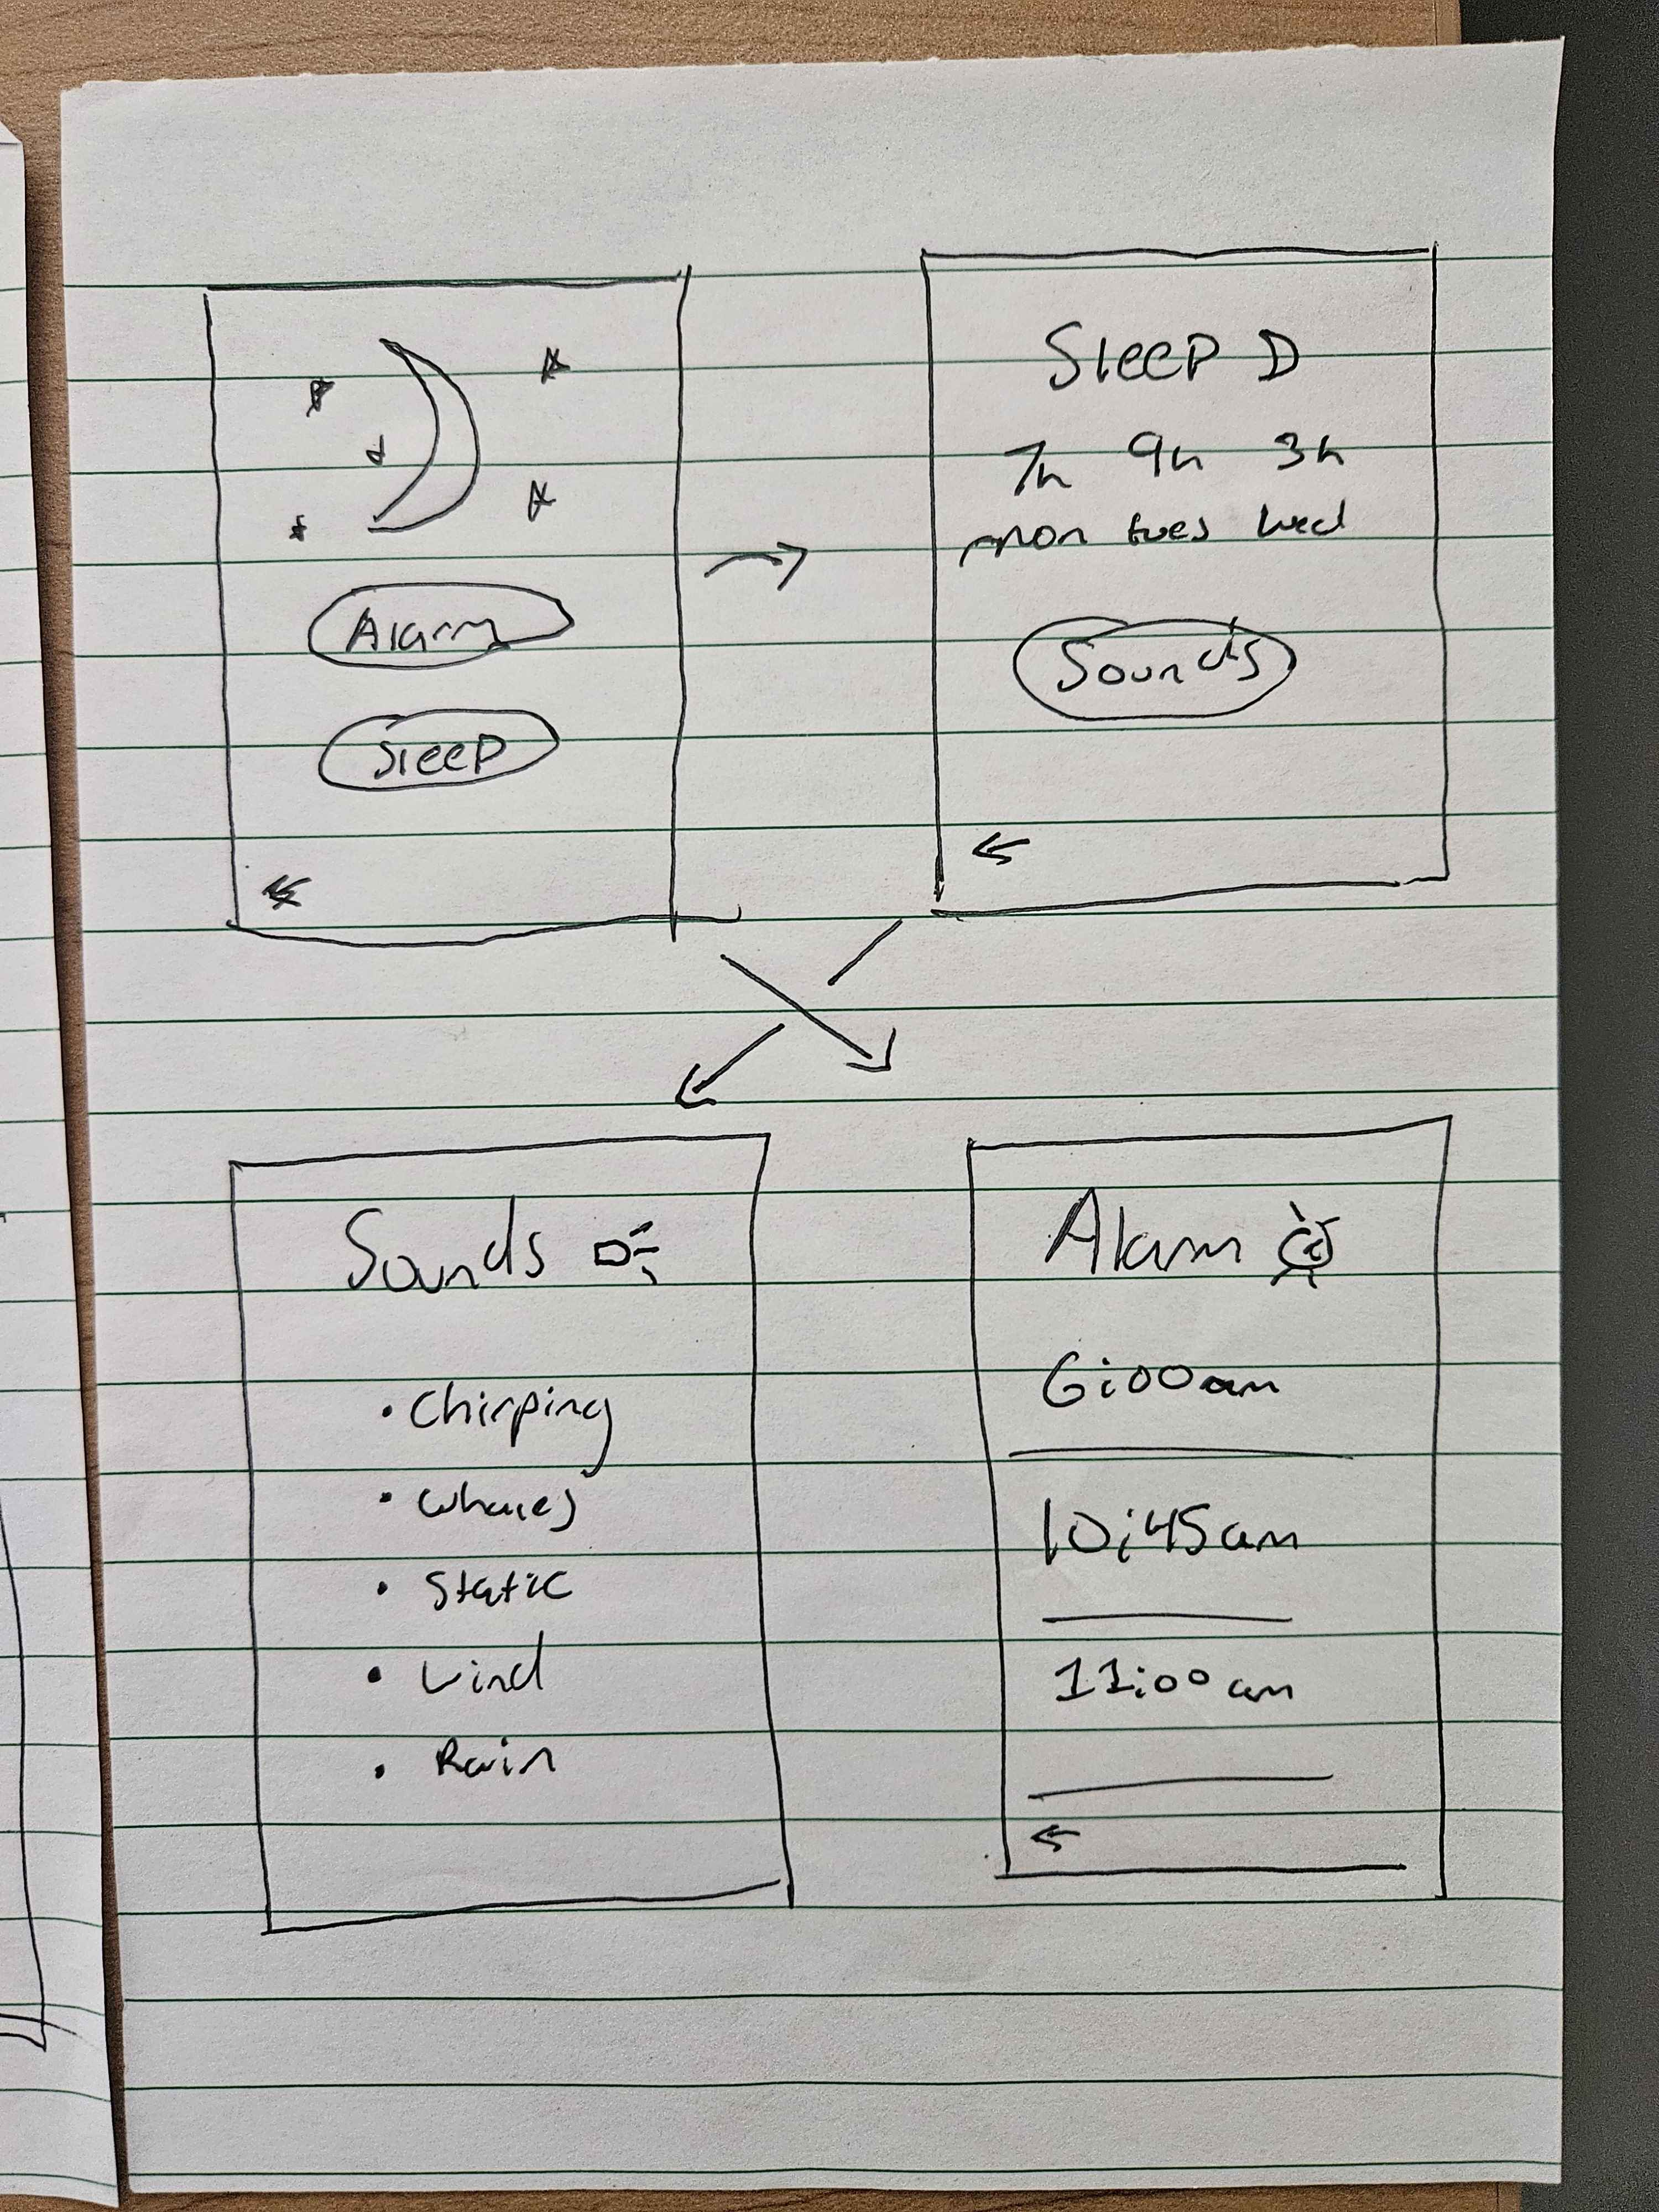 Alarm
Sleep
Sleep
7h 9h 3h
mon tues wed
Sounds
Sounds
• Chirping
• Whales
• Static
• Wind
• Rain
Alarm
6:00am
10:45am
11:00am